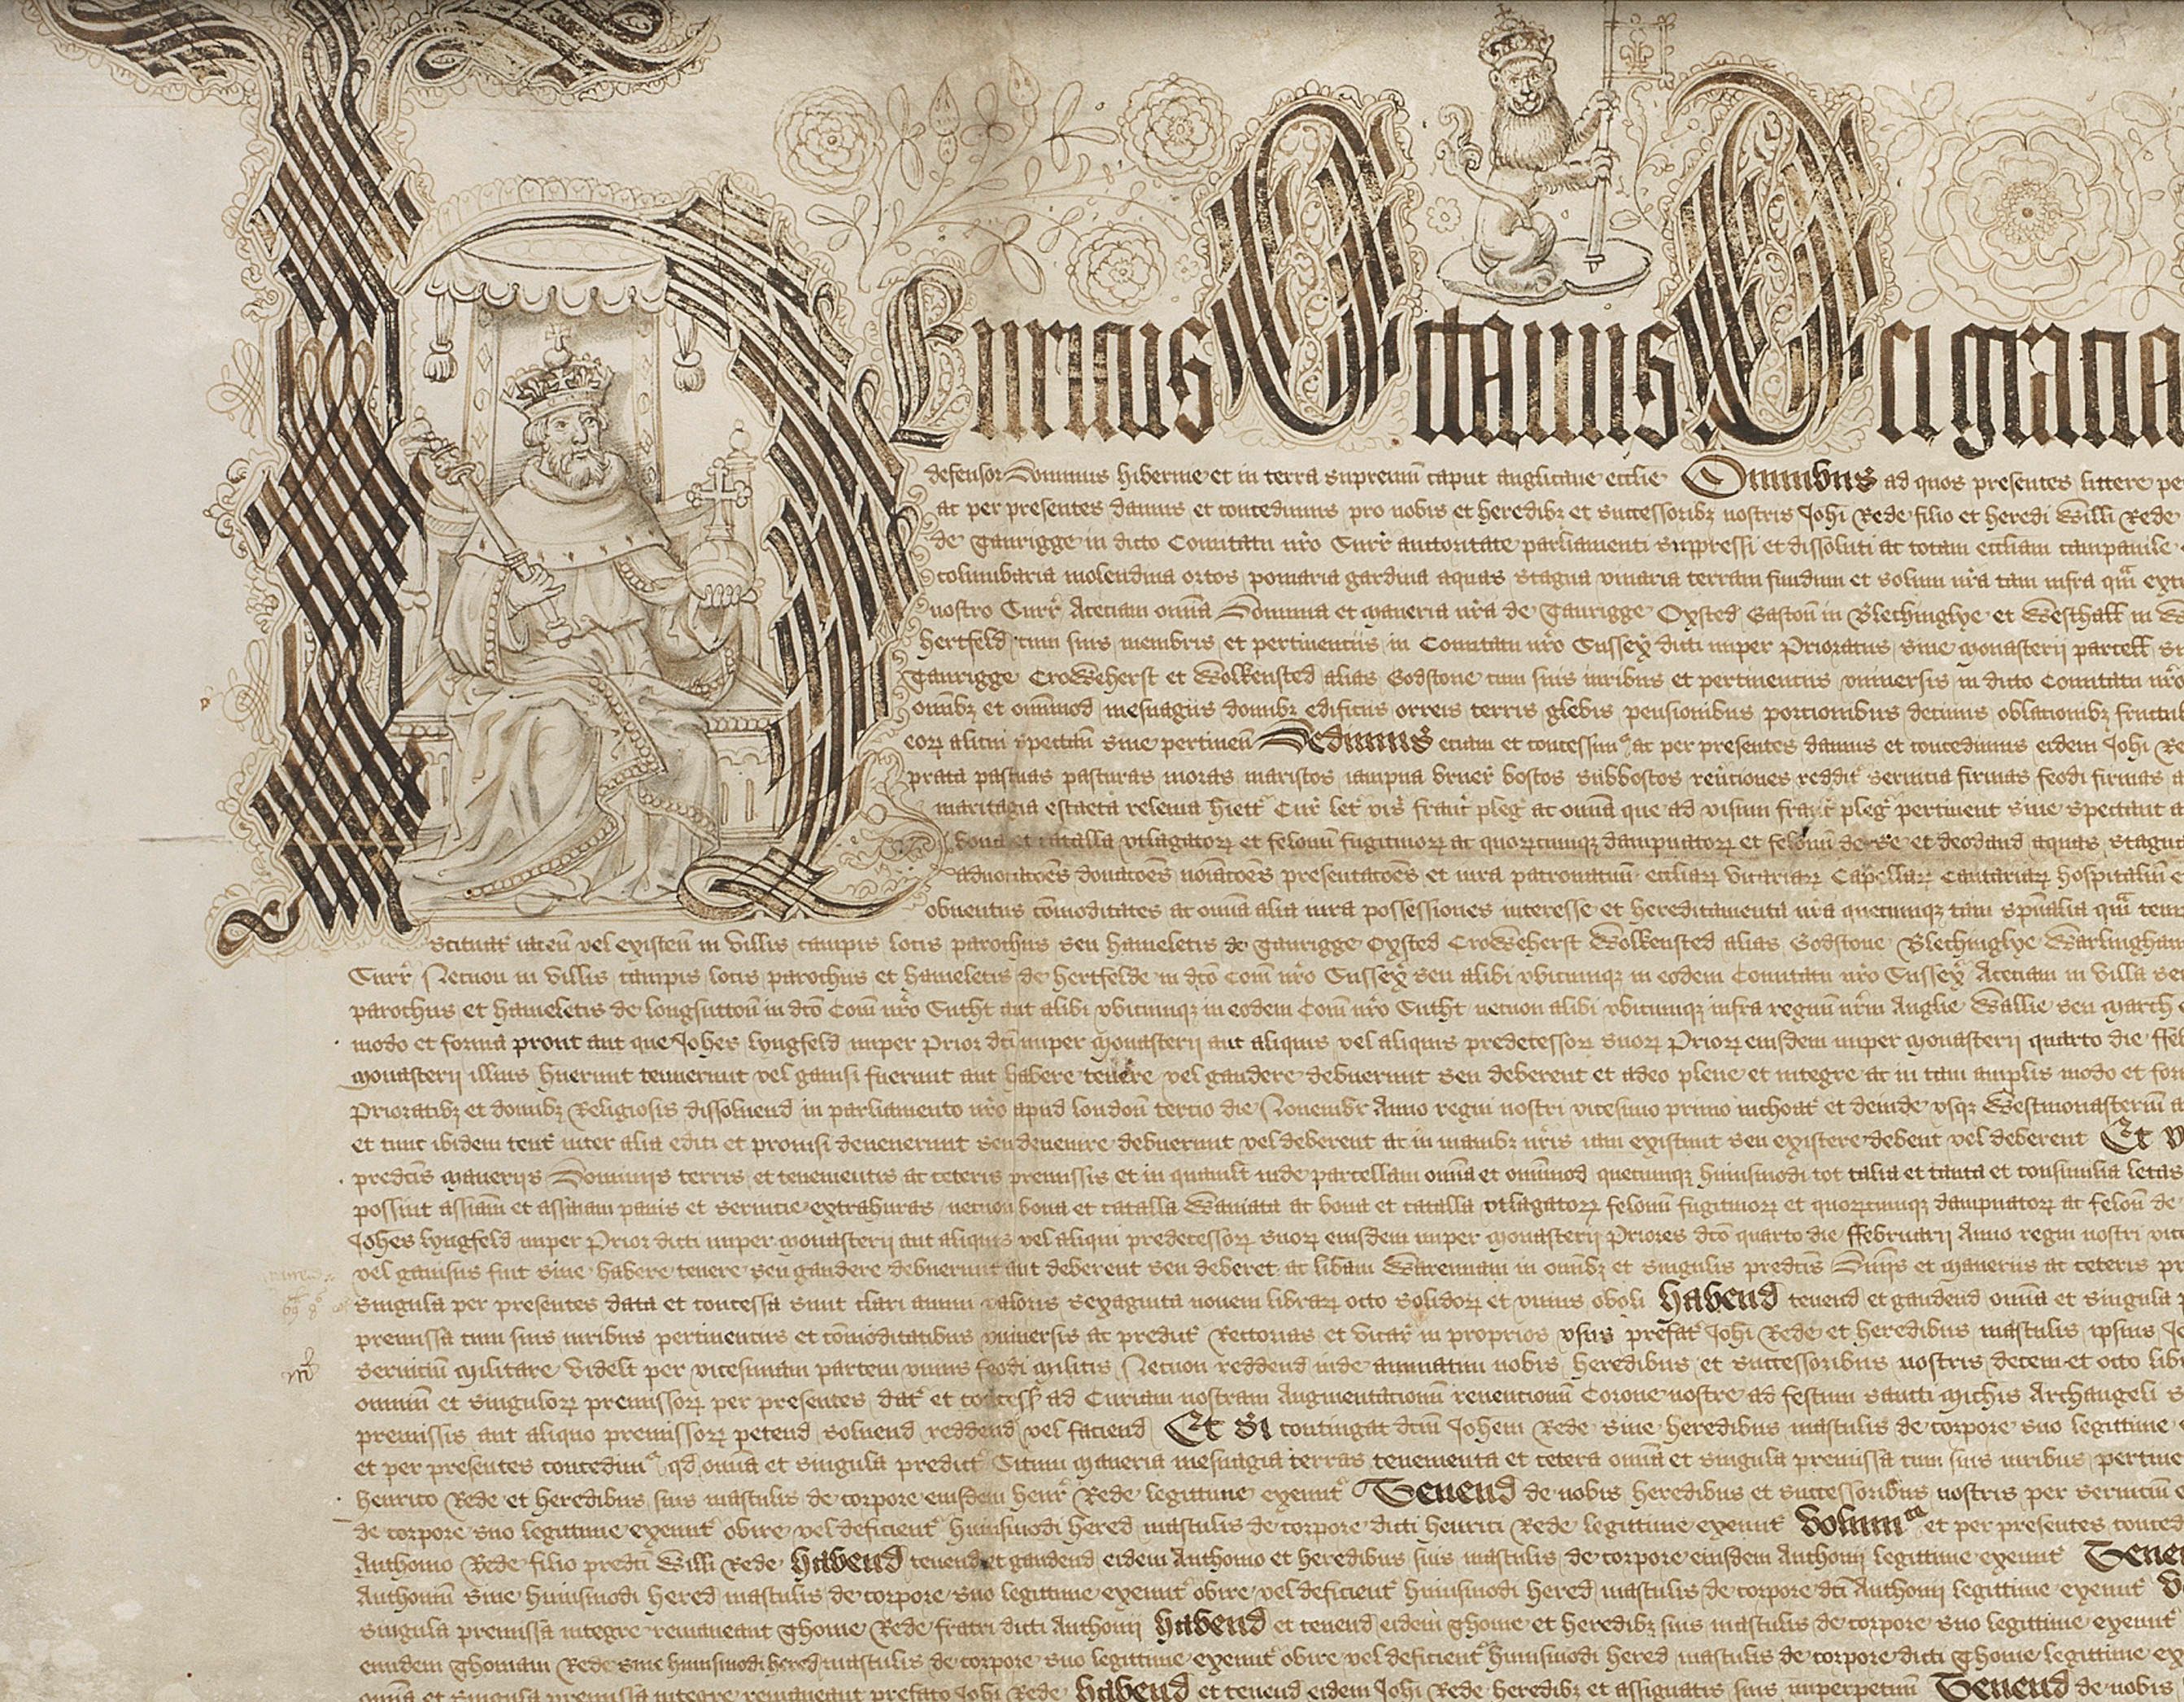 Henricus Octauus Dei gratia
defensor Dominus hibernie et in terra supremū caput anglicane ecclie Omnibus ad quos presentes littere
ac per presentes damus et concedimus pro nobis et heredibȝ et successoribȝ nostris Johi Rede filio et heredi Willi Rede
de Tanrigge in dicto Comitatu nr̄o Surr̄ auctoritate parliamenti suppressi et dissoluti ac totam eccliam campanile
columbaria molendina ortos pomaria gardina aquas stagna vinaria terram fundum et solum nr̄a tam infra qm̄ ext
nostro Surr̄ Aceciam om̄ia Dominia et maneria nr̄a de Tanrigge Oxsted Gaston in Blechinglye et Westhall in
hertfeld cum suis membris et pertinentiis in Comitatu nr̄o Sussex dicti nuper Prioratus siue monasterii parcell
Tanrigge Croweherst et Wolkensted alias Godstone cum suis iuribus et pertinentiis vniuersis in dicto Comitatu nr̄o
om̄ibȝ et om̄imod mesuagiis domibȝ edificiis orreis terris glebis pensionibus porcionibus decimis oblacionibȝ fructu
eoꝝ alicui spectan̄ siue pertinen̄ Dedimus eciam et concessim⁹ ac per presentes damus et concedimus eidem Johi Re
prata pascuas pasturas moras mariscos iampna bruer̄ boscos subboscos reūciones reddit̄ seruicia firmas feodi firmas
maritagia escaeta releuia hiett̄ Cur̄ let̄ vis̄ franc̄ pleḡ ac om̄ia que ad visum franc̄ pleḡ pertinent siue spectant
bona et catalla vtlagatoꝝ et felonū fugitiuoꝝ ac quoꝝcumqȝ dampnatoꝝ et felonū de se et deodand aquas stagn
aduocacōes donacōes noīacōes presentacōes et iura patronatuum eccliaꝝ vicariaꝝ Capellaꝝ Cantariaꝝ hospitaliū
obuentus cōmoditates ac om̄ia alia iura possessiones interesse et hereditamenta nr̄a quecumqȝ tam spūalia qm̄ tem
scituat̄ iacen̄ vel existen̄ in villis campis locis parochiis seu hameletis de Tanrigge Oxsted Croweherst Wolkensted alias Godstone Blechinglye Warlingham
Surr̄ Necnon in villis campis locis parochiis et hameletis de hertfelde in dc̄o Com̄ nr̄o Sussex seu alibi vbicumqȝ in eodem Comitatu nr̄o Sussex Aceciam in villa
parochiis et hameletis de longsutton in dc̄o Com̄ nr̄o Sutht aut alibi vbicumqȝ in eodem Com̄ nr̄o Sutht necnon alibi vbicumqȝ infra regnū nr̄m Anglie Wallie seu March
modo et forma prout aut que Johes lyngfeld nuper Prior dc̄i nuper monasterii aut aliquis vel aliquis predecessoꝝ suoꝝ Prioꝝ eiusdem nuper monasterii quarto die ffeb
monasterii illius huerunt tenuerunt vel gauisi fuerunt aut habere tenere vel gaudere debuerunt seu deberent et adeo plene et integre ac in tam amplis modo et for
Prioratibȝ et domibȝ Religiosis dissoluend in parliamento nr̄o apud london̄ tercio die Nouembr̄ Anno regni nostri vicesimo primo inchoat̄ et deinde vsqȝ Westmonasterium
et tunc ibidem tent̄ inter alia editi et prouisi deuenerunt seu deuenire debuerunt vel deberent ac in manibȝ nr̄is iam existunt seu existere debent vel deberent Et
predc̄is maneriis Dominiis terris et tenementis ac ceteris premissis et in qualt̄ inde parcellam om̄ia et om̄imod quecumqȝ huiusmodi tot talia et tanta et consimilia letas
possint assiam et assaiam panis et seruicie extrahuras necnon bona et catalla Wauiata ac bona et catalla vtlagatoꝝ felonū fugitiuoꝝ et quoꝝcumqȝ dampnatoꝝ ac felon̄ de
Johes lyngfeld nuper Prior dicti nuper monasterii aut aliquis vel aliqui predecessoꝝ suoꝝ eiusdem nuper monasterii Priores dc̄o quarto die ffebruarii Anno regni nostri vic
vel gauisus fuit siue habere tenere seu gaudere debuerunt aut deberent seu deberet ac libam Warennam in om̄ibȝ et singulis predc̄is Dn̄iis et maneriis ac ceteris pr
singula per presentes data et concessa sunt clari annui valoris sexaginta nouem libraꝝ octo solidoꝝ et vnius oboli habend tenend et gaudend om̄ia et singula
premissa cum suis iuribus pertinentiis et cōmoditatibus vniuersis ac predict̄ Rectorias et vicar̄ in proprios vsus prefat̄ Johi Rede et heredibus masculis ipsius
seruiciū militare videlt per vicesimam partem vnius feodi militis Necnon reddend inde annuatim nobis heredibus et successoribus nostris decem et octo lib
omniū et singuloꝝ premissoꝝ per presentes dat̄ et concess̄ ad Curiam nostram Augmentacionū reuencionū Corone nostre ad festum sancti Michis Archangeli
premissis aut aliquo premissoꝝ petend soluend reddend vel faciend Et si contingat dc̄m Johem Rede siue heredibus masculis de corpore suo legittime
et per presentes concedim⁹ qd om̄ia et singula predict̄ Scitum maneria mesuagia terras tenementa et cetera om̄ia et singula premissa cum suis iuribus pertine
henrico Rede et heredibus suis masculis de corpore eiusdem henr̄ Rede legittime exeunt̄ Tenend de nobis heredibus et successoribus nostris per seruiciū
de corpore suo legittime exeunt̄ obire vel deficient̄ huiusmodi hered masculis de corpore dicti henrici Rede legittime exeunt̄ volum⁹ et per presentes conced
Anthonio Rede filio predc̄i Willi Rede habend tenend et gaudend eidem Anthonio et heredibus suis masculis de corpore eiusdem Anthonii legittime exeunt̄ Tenen
Anthoniū siue huiusmodi hered masculis de corpore suo legittime exeunt̄ obire vel deficient̄ huiusmodi hered masculis de corpore dc̄i Anthonii legittime exeunt̄
singula premissa integre remaneant Thome Rede fratri dicti Anthonii habend et tenend eidem Thome et heredibȝ suis masculis de corpore suo legittime exeunt̄
eundem Thomam Rede siue huiusmodi hered masculis de corpore suo legittime exeunt̄ obire vel deficient̄ huiusmodi hered masculis de corpore dicti Thome legittime
om̄ia et singula premissa integre remaneant prefato Johi Rede habend et tenend eidem Johi Rede heredibȝ et assignatis suis imperpetuū Tenend de nobis